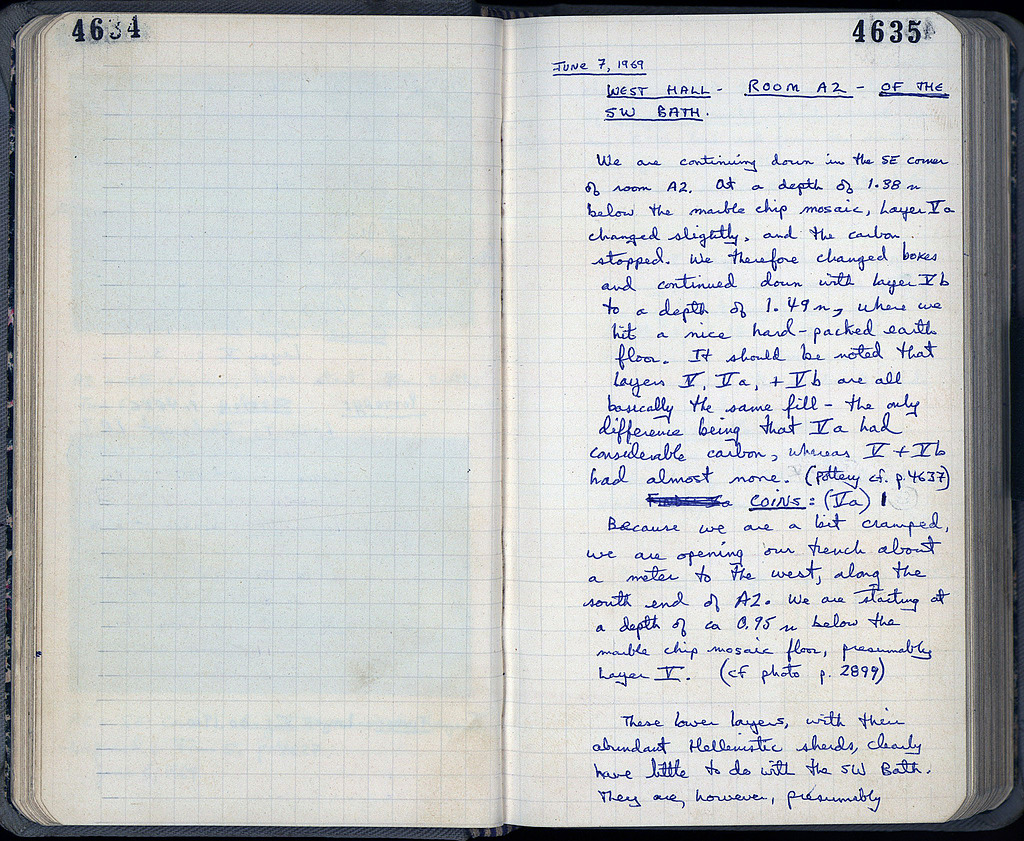 4634
4635
JUNE 7, 1969
WEST HALL - ROOM A2 - OF THE
SW BATH.
We are continuing down in the SE corner
of room A2. At a depth of 1.38 m
below the marble chip mosaic, Layer Va
changed slightly, and the carbon
stopped. We therefore changed boxes
and continued down with layer Vb
to a depth of 1.49 m, where we
hit a nice hard-packed earth
floor. It should be noted that
layers V, Va, + Vb are all
basically the same fill - the only
difference being that Va had
considerable carbon, whereas V + Vb
had almost none. (pottery cf. p. 4637)
COINS: (Va) 1
Because we are a bit cramped,
we are opening our trench about
a meter to the west, along the
south end of A2. We are starting at
a depth of ca 0.95 m below the
marble chip mosaic floor, presumably
Layer V. (cf photo p. 2899)
These lower layers, with their
abundant Hellenistic sherds, clearly
have little to do with the SW Bath.
They are, however, presumably